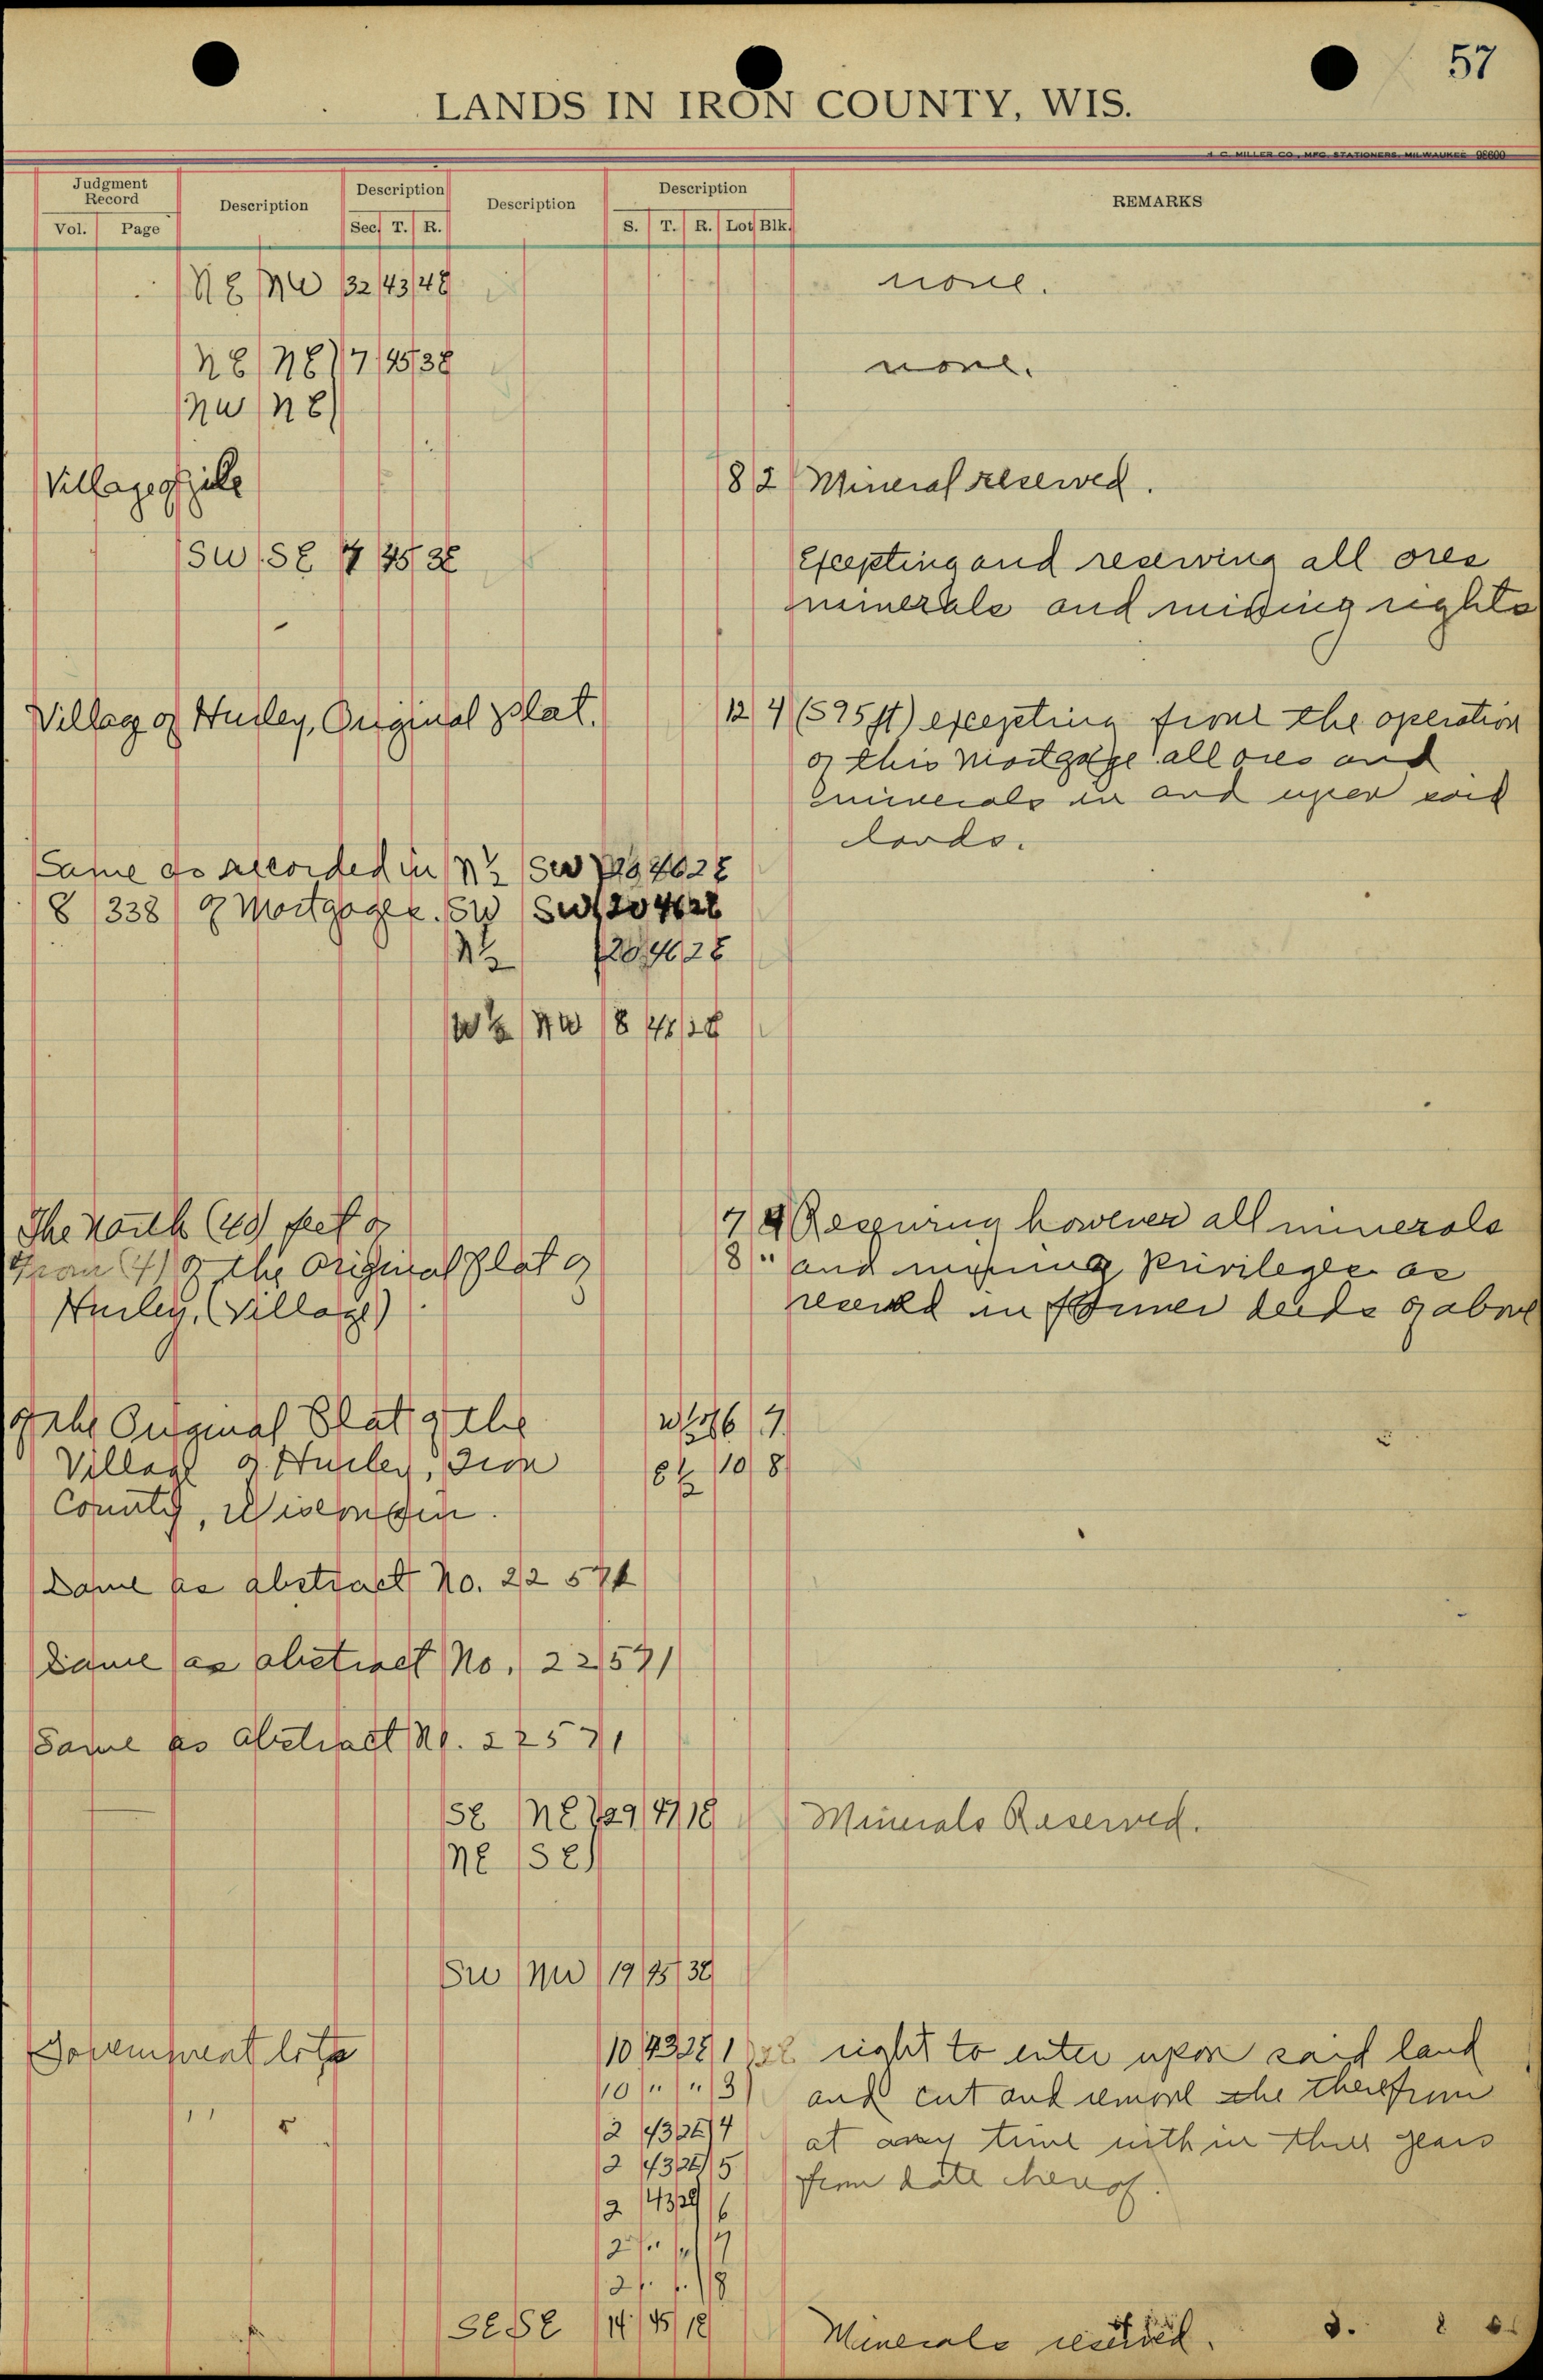 57
LANDS IN IRON COUNTY, WIS.
H. C. MILLER CO., MFG. STATIONERS, MILWAUKEE 98600
Judgment Record Description Description Description Description REMARKS
Vol. Page Sec T. R. S. T. R. Lot Blk.
NE NW 32 43 4E none.
NE NE } 7 45 3E none.
NW NE }
Village of Gile 8 2 Mineral reserved.
SW SE 45 3E Excepting and reserving all ores
minerals and mining rights
Village of Hurley, Original plat. 12 4 (595 ft) excepting from the operation
of this mortgage all ores and
minerals in and upon said
lands.
Same as recorded in N½ SW 462E
8 338 of Mortgages. SW SW 20 462E
N½ 20 46 2E
W½ NW 8 46 2E
The North (40) feet of 7 Reserving however all minerals
of the Original Plat of 8 " and mining privileges as
Hurley, (Village) in former deeds of above
of the Original Plat of the W½ of 6
Village of Hurley, Iron E½ 10 8
County, Wisconsin.
Same as abstract No. 22571
Same as abstract No. 22571
Same as abstract No. 22571
SE NE } 29 47 1E Minerals Reserved.
NE SE }
SW NW 19 45 3E
Government lots 10 43 2E 1 right to enter upon said land
10 " " 3 and cut and remove the therefrom
" 2 43 2E 4 at any time within three years
2 43 2E 5 from date hereof.
2 43 2E 6
2 " " 7
2 " " 8
SE SE 14 45 1E Minerals reserved.